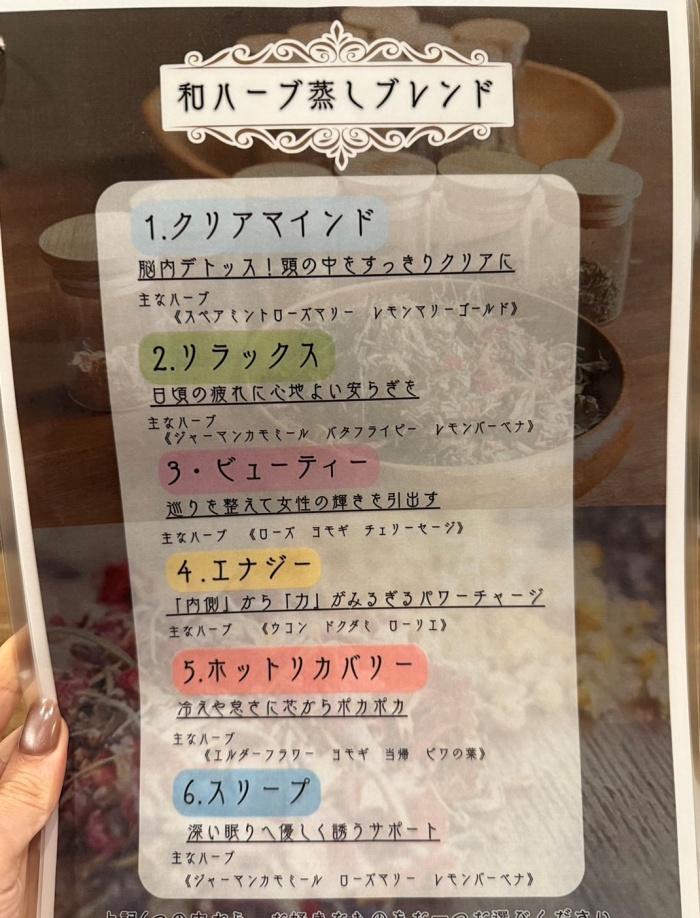 和ハーブ蒸しブレンド
1.クリアマインド
脳内デトックス！頭の中をすっきりクリアに
主なハーブ
《スペアミントローズマリー　レモンマリーゴールド》
2.リラックス
日頃の疲れに心地よい安らぎを
主なハーブ
《ジャーマンカモミール　バタフライピー　レモンバーベナ》
3・ビューティー
巡りを整えて女性の輝きを引出す
主なハーブ　《ローズ　ヨモギ　チェリーセージ》
4.エナジー
「内側」から「力」がみるぎるパワーチャージ
主なハーブ　《ウコン　ドクダミ　ローリエ》
5.ホットリカバリー
冷えや怠さに芯からポカポカ
主なハーブ
《エルダーフラワー　ヨモギ　当帰　ビワの葉》
6.スリープ
深い眠りへ優しく誘うサポート
主なハーブ
《ジャーマンカモミール　ローズマリー　レモンバーベナ》
上記6つの中から、お好きなものをお一つお選びください